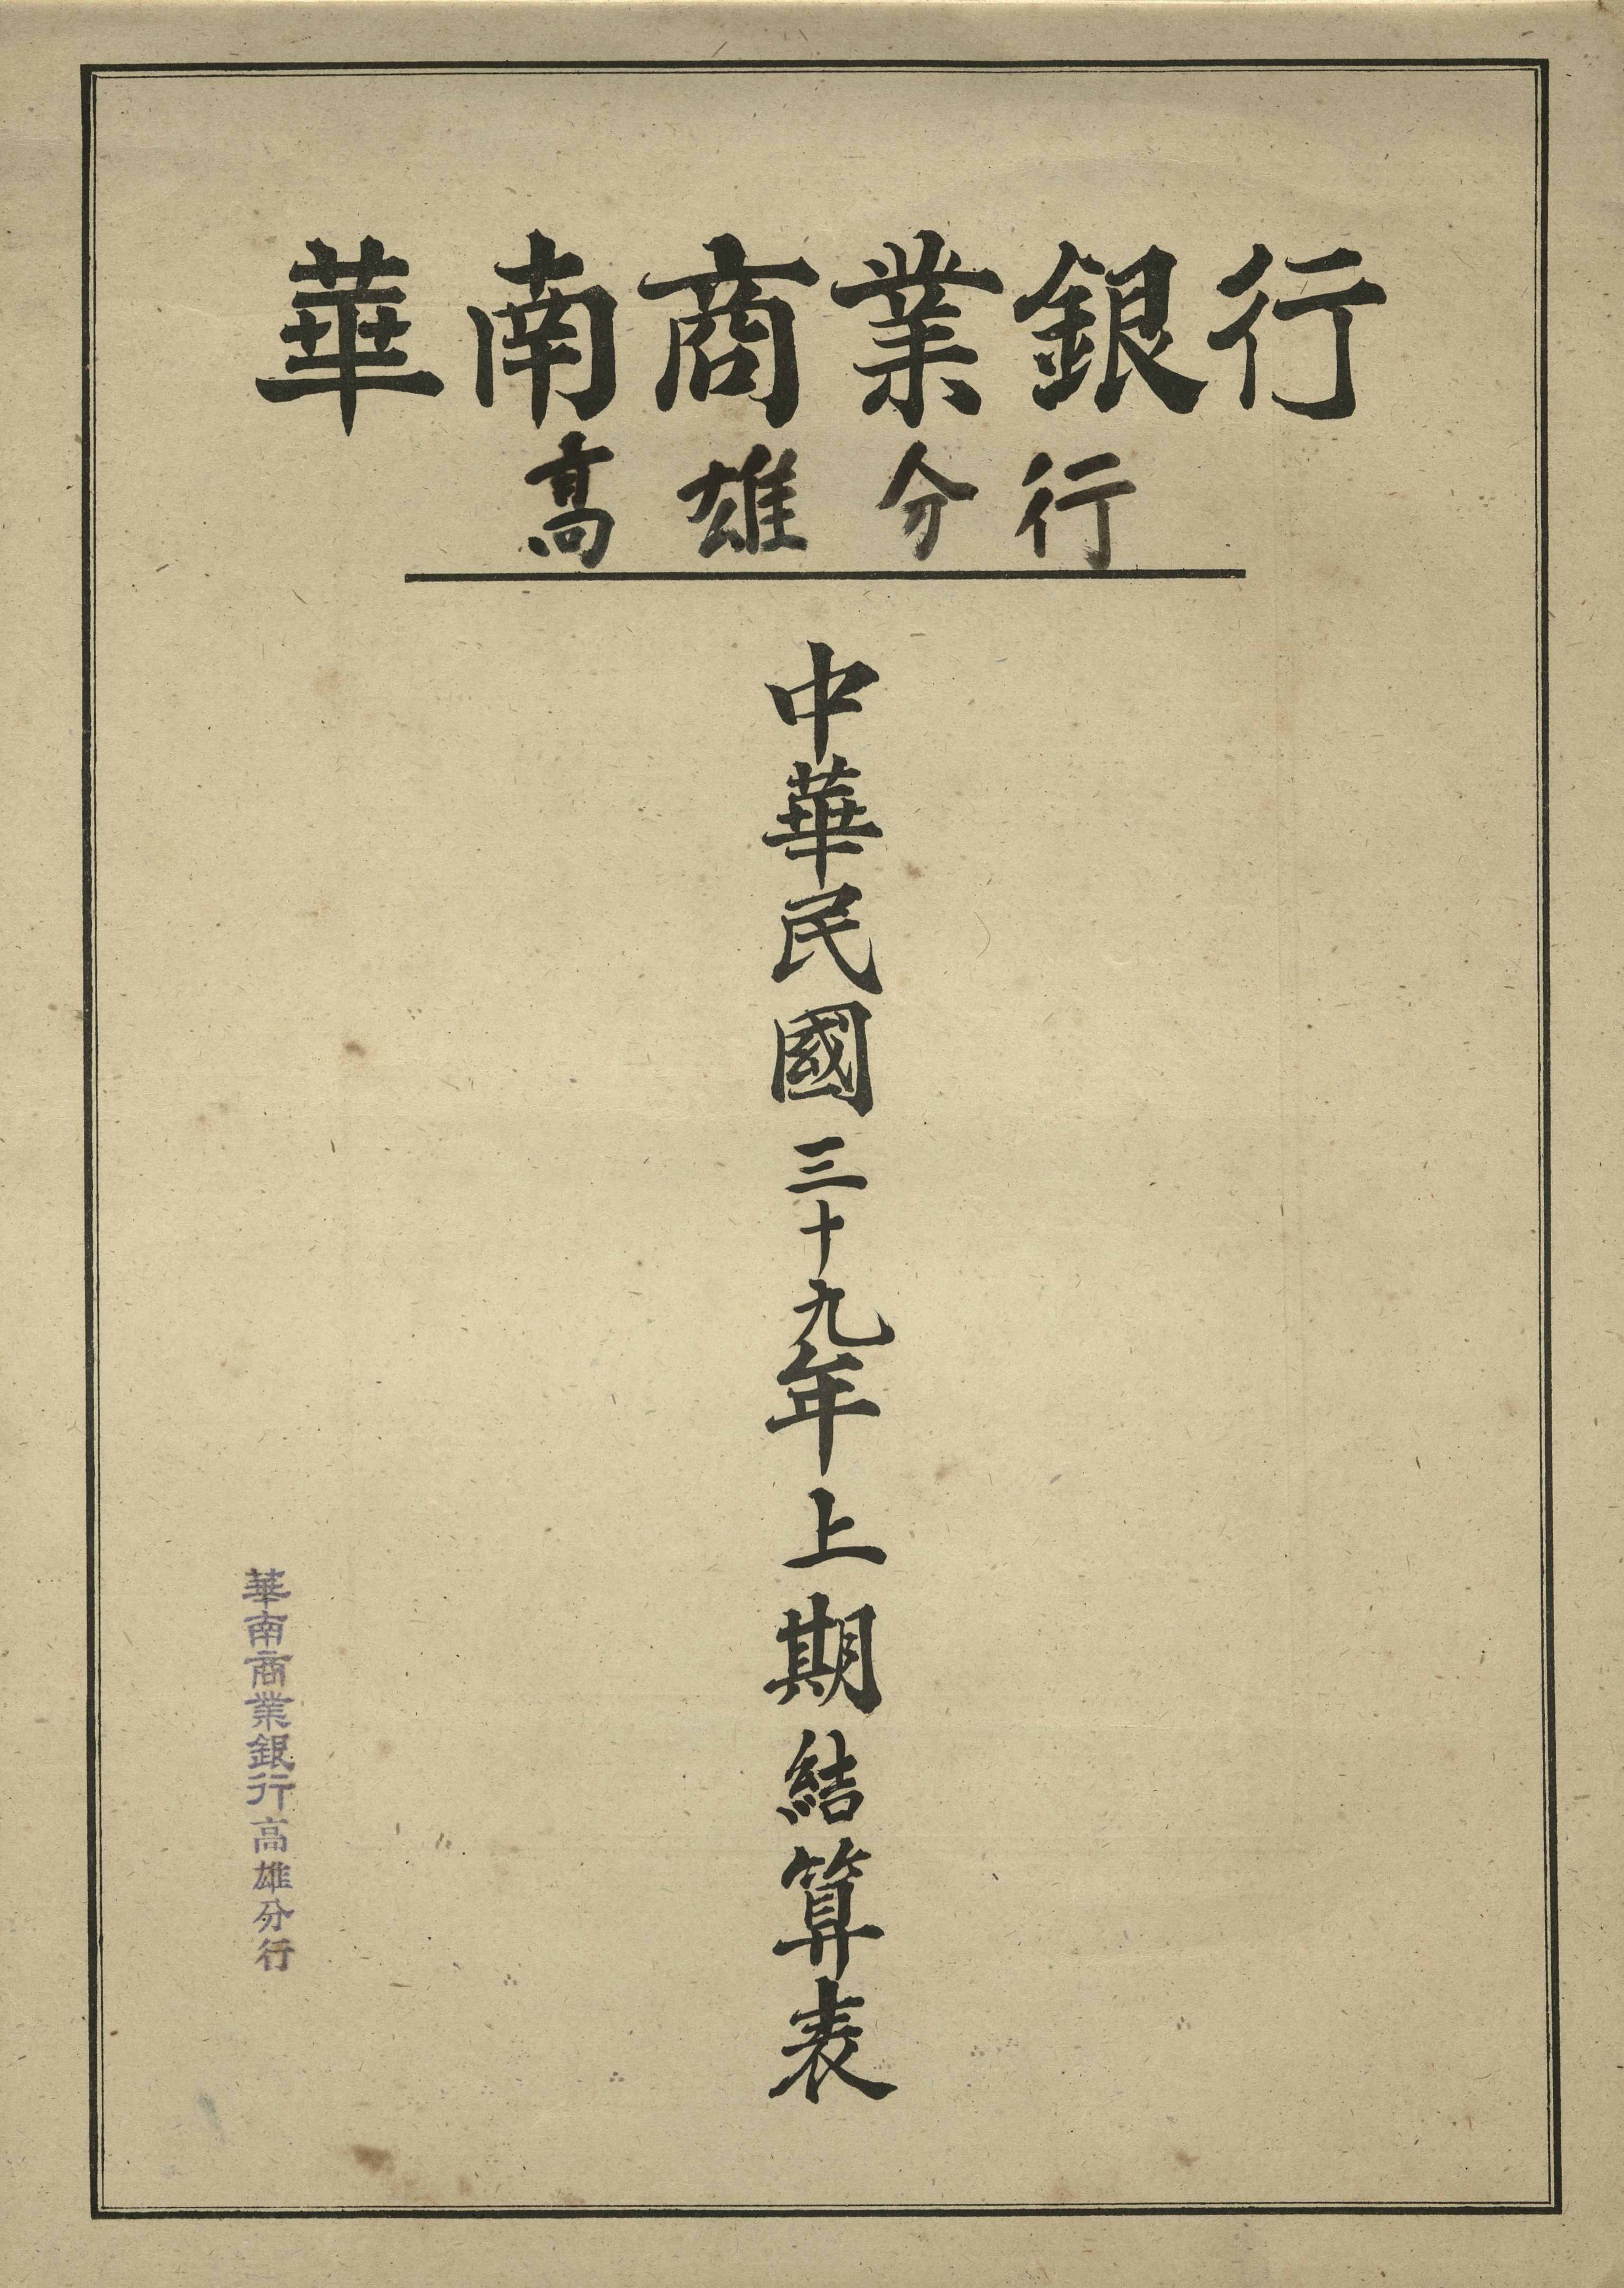 華南商業銀行
高雄分行
中華民國三十九年上期結算表
華南商業銀行高雄分行